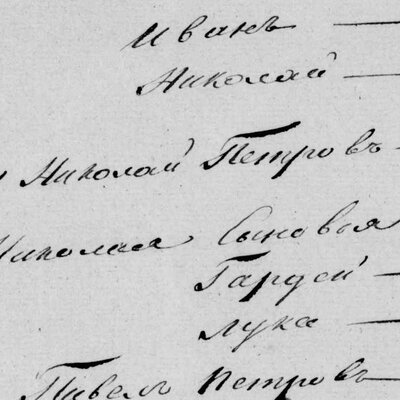 Иванъ
Николай
Николай Петровъ
Николая Сыновья
Гардей
Лука
Павелъ Петровъ